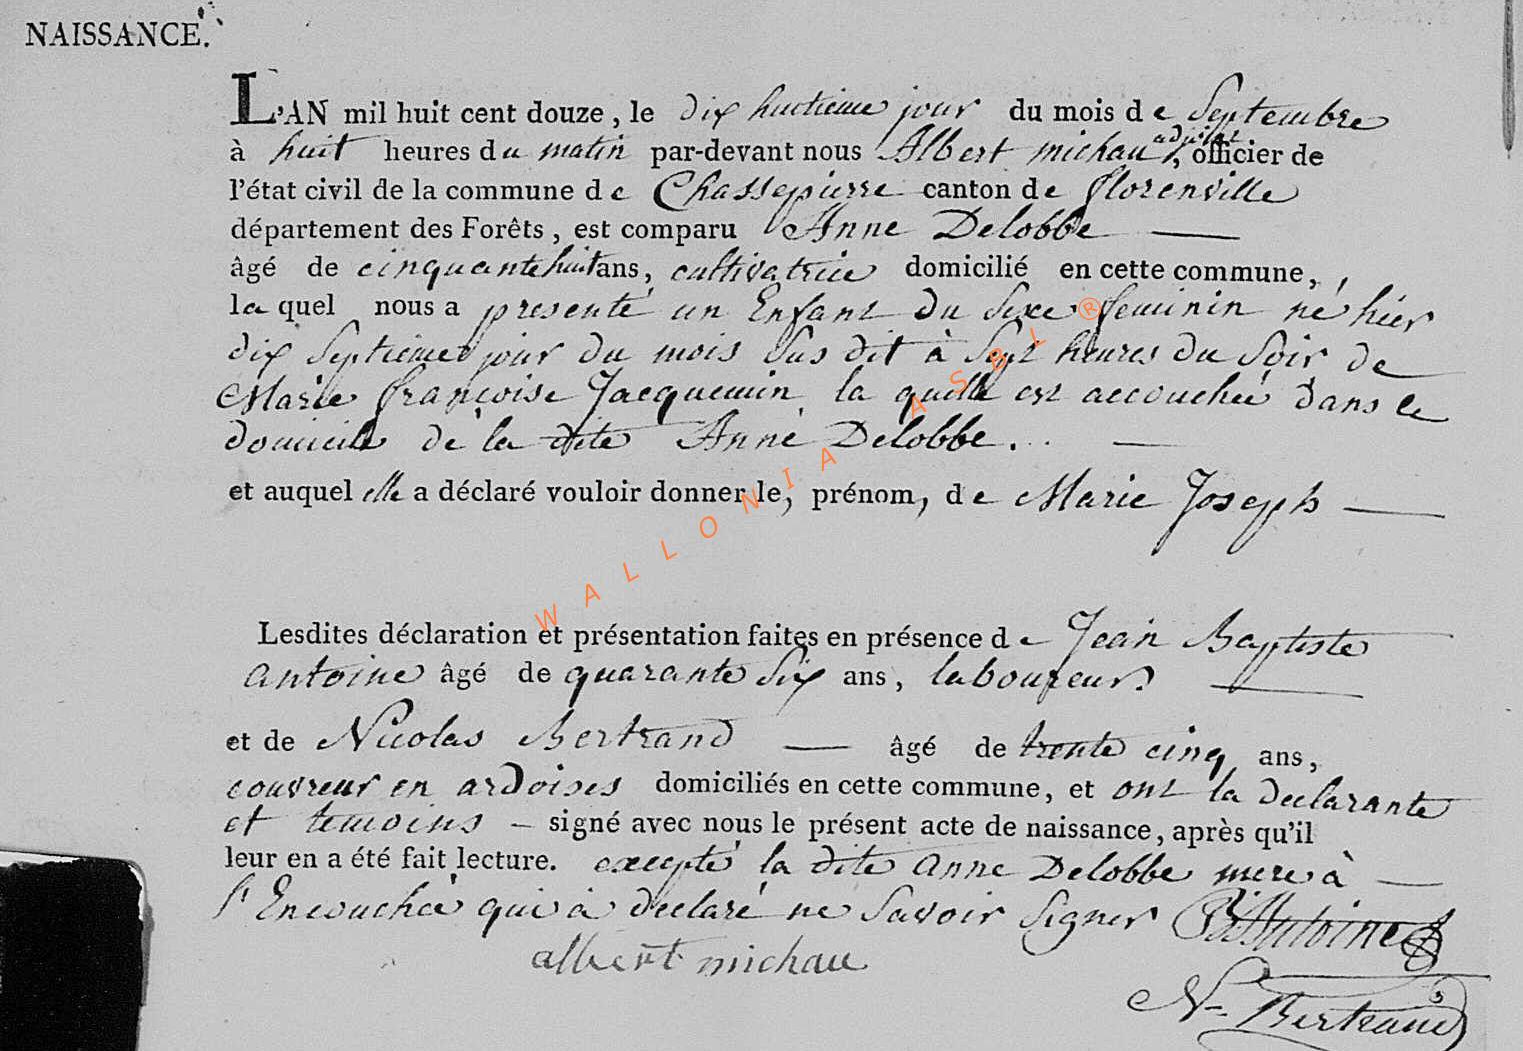 NAISSANCE.
L'AN mil huit cent douze, le dix huitieme jour du mois de Septembre
à huit heures du matin par-devant nous Albert michau adjoint, officier de
l'état civil de la commune de Chassepierre canton de florenville
département des Forêts, est comparu Anne Delobbe
âgé de cinquante huit ans, cultivatrice domicilié en cette commune,
la quel nous a presenté un Enfant du Sexe feminin né hier
dix Septieme jour du mois Sus dit à Sept heures du Soir de
Marie françoise Jacquemin la quelle est accouchée dans le
domicile de la dite Anne Delobbe.
et auquel elle a déclaré vouloir donner le, prénom, de Marie Joseph
Lesdites déclaration et présentation faites en présence de Jean Baptiste
antoine âgé de quarante Six ans, laboureur.
et de Nicolas Bertrand âgé de trente cinq ans,
couvreur en ardoises domiciliés en cette commune, et ont la declarante
et temoins signé avec nous le présent acte de naissance, après qu'il
leur en a été fait lecture. excepté la dite anne Delobbe mere à
l'Encouchée qui a declaré ne Savoir Signer Antoine
albert michau
N Bertrand
WALLONIA ASBL ®